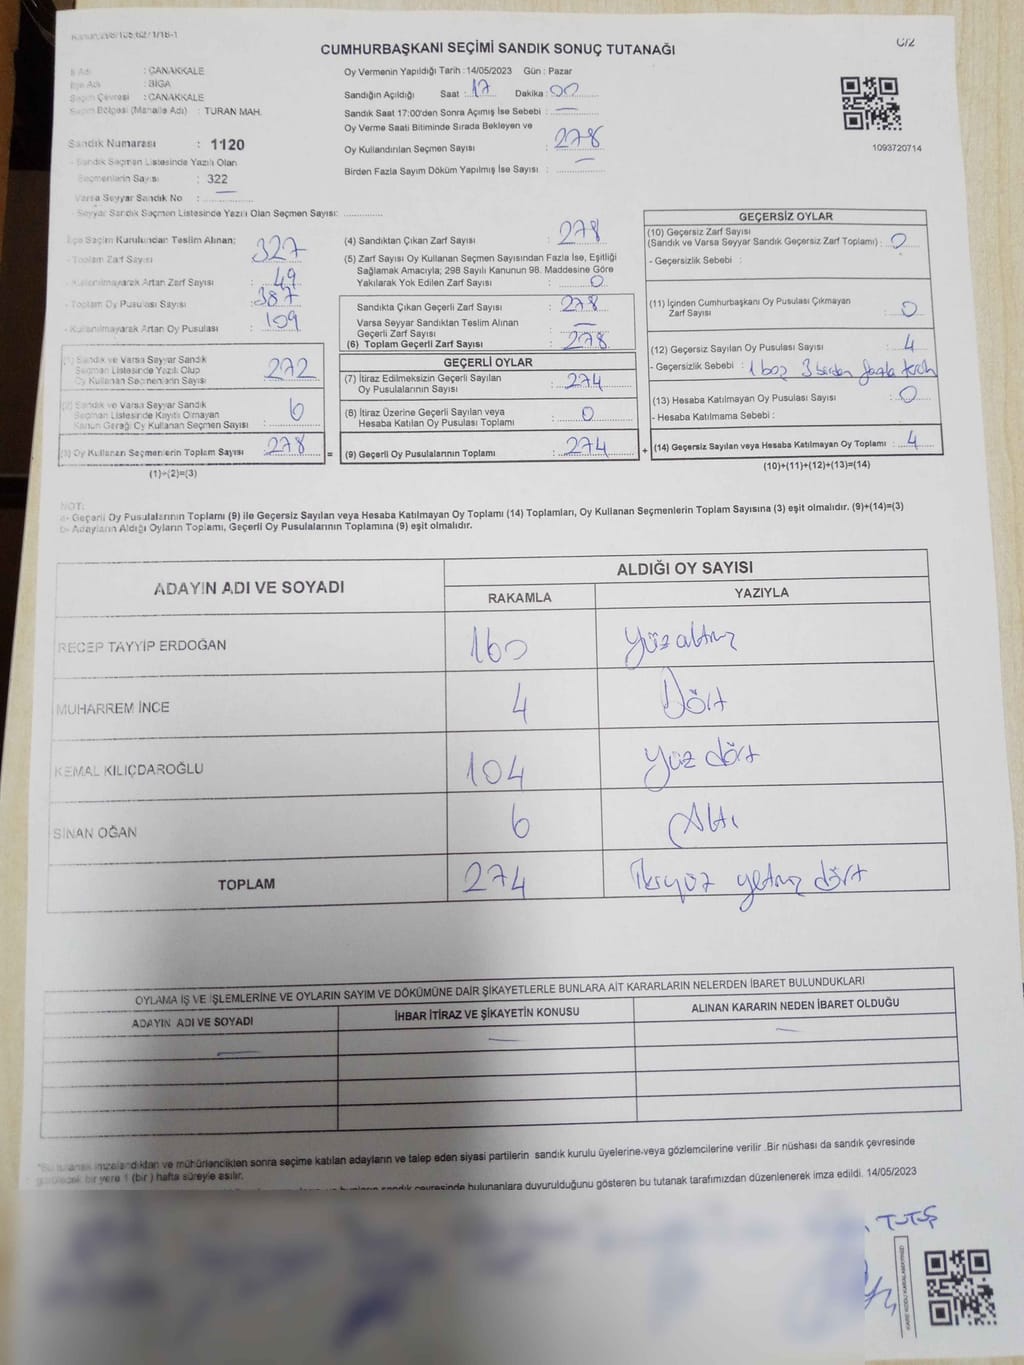 Kanun:298/105,6271/18-1
C/2
CUMHURBAŞKANI SEÇİMİ SANDIK SONUÇ TUTANAĞI
İl Adı : ÇANAKKALE
İlçe Adı : BİGA
Seçim Çevresi : ÇANAKKALE
Seçim Bölgesi (Mahalle Adı) : TURAN MAH.
Sandık Numarası : 1120
- Sandık Seçmen Listesinde Yazılı Olan
Seçmenlerin Sayısı : 322
Varsa Seyyar Sandık No : —
- Seyyar Sandık Seçmen Listesinde Yazılı Olan Seçmen Sayısı:
Oy Vermenin Yapıldığı Tarih : 14/05/2023 Gün : Pazar
Sandığın Açıldığı Saat : 17 Dakika : 00
Sandık Saat 17:00'den Sonra Açımış İse Sebebi : —
Oy Verme Saati Bitiminde Sırada Bekleyen ve
Oy Kullandırılan Seçmen Sayısı : 278
Birden Fazla Sayım Döküm Yapılmış İse Sayısı : —
1093720714
İlçe Seçim Kurulundan Teslim Alınan;
- Toplam Zarf Sayısı : 327
- Kullanılmayarak Artan Zarf Sayısı : 49
- Toplam Oy Pusulası Sayısı : 387
- Kullanılmayarak Artan Oy Pusulası : 109
(1) Sandık ve Varsa Seyyar Sandık
Seçmen Listesinde Yazılı Olup
Oy Kullanan Seçmenlerin Sayısı : 272
(2) Sandık ve Varsa Seyyar Sandık
Seçmen Listesinde Kayıtlı Olmayan
Kanun Gereği Oy Kullanan Seçmen Sayısı : 6
(3) Oy Kullanan Seçmenlerin Toplam Sayısı : 278
(1)+(2)=(3)
=
(4) Sandıktan Çıkan Zarf Sayısı : 278
(5) Zarf Sayısı Oy Kullanan Seçmen Sayısından Fazla İse, Eşitliği
Sağlamak Amacıyla; 298 Sayılı Kanunun 98. Maddesine Göre
Yakılarak Yok Edilen Zarf Sayısı : 0
Sandıkta Çıkan Geçerli Zarf Sayısı : 278
Varsa Seyyar Sandıktan Teslim Alınan
Geçerli Zarf Sayısı : —
(6) Toplam Geçerli Zarf Sayısı : 278
GEÇERLİ OYLAR
(7) İtiraz Edilmeksizin Geçerli Sayılan
Oy Pusulalarının Sayısı : 274
(8) İtiraz Üzerine Geçerli Sayılan veya
Hesaba Katılan Oy Pusulası Toplamı : 0
(9) Geçerli Oy Pusulalarının Toplamı : 274
+
GEÇERSİZ OYLAR
(10) Geçersiz Zarf Sayısı
(Sandık ve Varsa Seyyar Sandık Geçersiz Zarf Toplamı) : 0
- Geçersizlik Sebebi :
(11) İçinden Cumhurbaşkanı Oy Pusulası Çıkmayan
Zarf Sayısı : 0
(12) Geçersiz Sayılan Oy Pusulası Sayısı : 4
- Geçersizlik Sebebi : 1 boş 3 birden fazla tercih
(13) Hesaba Katılmayan Oy Pusulası Sayısı : 0
- Hesaba Katılmama Sebebi :
(14) Geçersiz Sayılan veya Hesaba Katılmayan Oy Toplamı : 4
(10)+(11)+(12)+(13)=(14)
NOT:
a- Geçerli Oy Pusulalarının Toplamı (9) ile Geçersiz Sayılan veya Hesaba Katılmayan Oy Toplamı (14) Toplamları, Oy Kullanan Seçmenlerin Toplam Sayısına (3) eşit olmalıdır. (9)+(14)=(3)
b- Adayların Aldığı Oyların Toplamı, Geçerli Oy Pusulalarının Toplamına (9) eşit olmalıdır.
ADAYIN ADI VE SOYADI ALDIĞI OY SAYISI
RAKAMLA YAZIYLA
RECEP TAYYİP ERDOĞAN 160 Yüzaltmış
MUHARREM İNCE 4 Dört
KEMAL KILIÇDAROĞLU 104 Yüz dört
SİNAN OĞAN 6 Altı
TOPLAM 274 İkiyüz yetmiş dört
OYLAMA İŞ VE İŞLEMLERİNE VE OYLARIN SAYIM VE DÖKÜMÜNE DAİR ŞİKAYETLERLE BUNLARA AİT KARARLARIN NELERDEN İBARET BULUNDUKLARI
ADAYIN ADI VE SOYADI İHBAR İTİRAZ VE ŞİKAYETİN KONUSU ALINAN KARARIN NEDEN İBARET OLDUĞU
— — —
"Bu tutanak imzalandıktan ve mühürlendikten sonra seçime katılan adayların ve talep eden siyasi partilerin sandık kurulu üyelerine veya gözlemcilerine verilir .Bir nüshası da sandık çevresinde
görülecek bir yere 1 (bir ) hafta süreyle asılır.
sandık çevresinde bulunanlara duyurulduğunu gösteren bu tutanak tarafımızdan düzenlenerek imza edildi. 14/05/2023
TUTUŞ
KARE KODU KARALAMAYINIZ